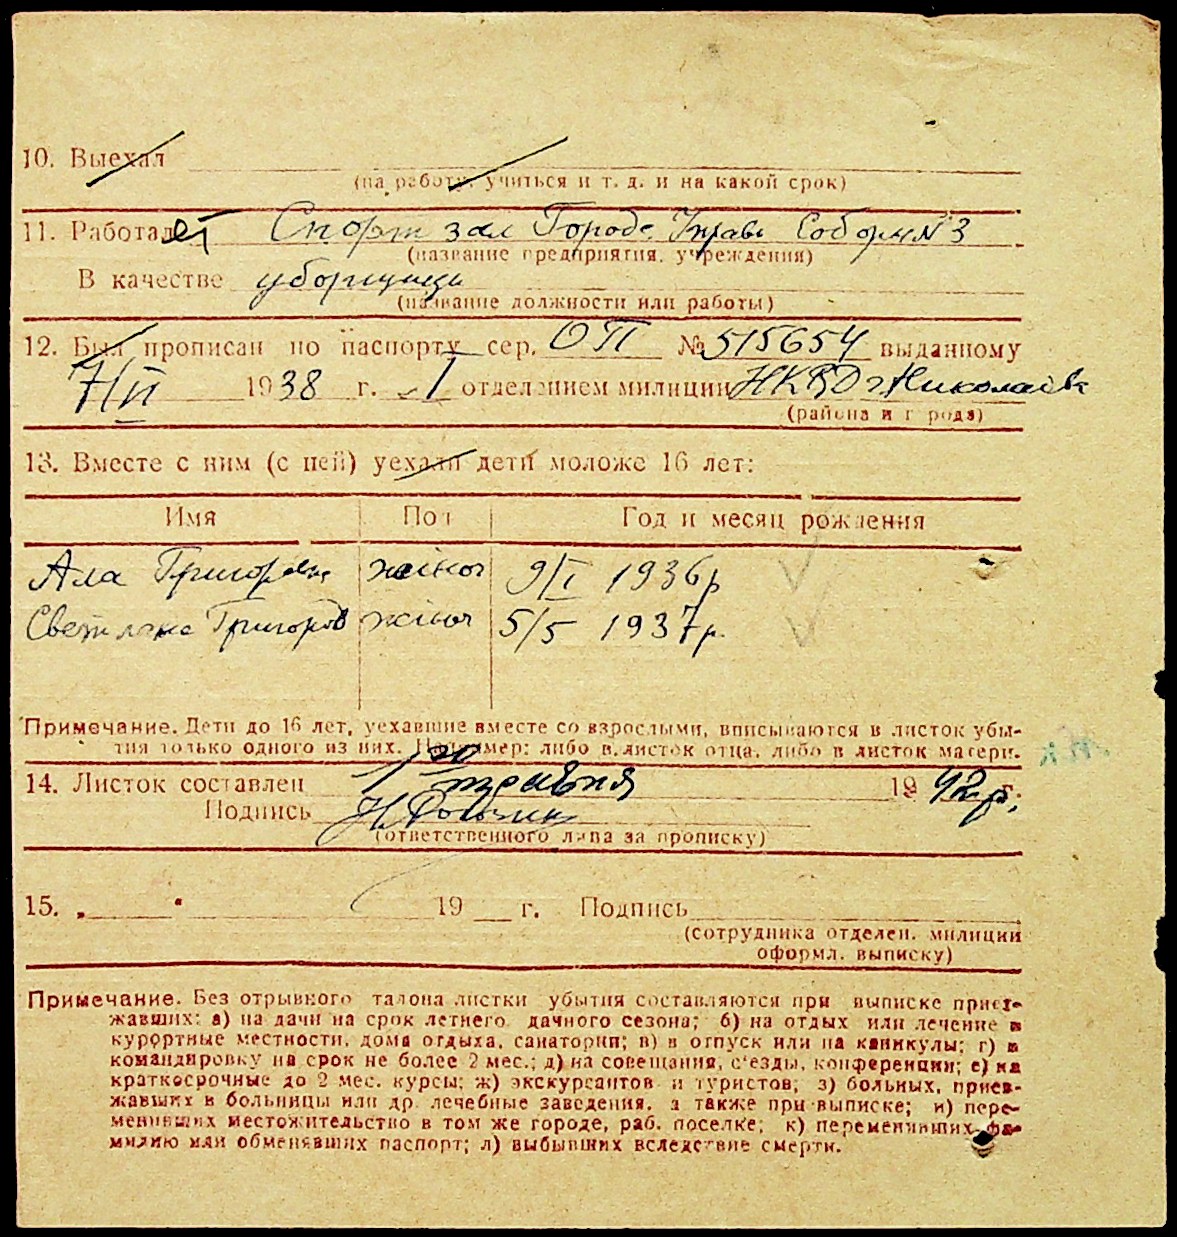 10. Выехал
(на работу, учиться и т. д. и на какой срок)
11. Работает Спорт зал Городс. Управ. Соборн № 3
(название предприятия, учреждения)
В качестве уборщици
(название должности или работы)
12. Был прописан по паспорту сер. ОП № 515654 выданному
7/II 1938 г. I отделением милиции НКВД г Николаева
(района и города)
13. Вместе с ним (с ней) уехали дети моложе 16 лет:
Имя Пол Год и месяц рождения
Ала Григоревн жіноч 9/I 1936р
Светлана Григоров жіноч 5/5 1937р.
Примечание. Дети до 16 лет, уехавшие вместе со взрослыми, вписываются в листок убы-
тия только одного из них. Например: либо в листок отца, либо в листок матери.
14. Листок составлен 1го травня 1942р.
Подпись
(ответственного лица за прописку)
15. „ “ 19 г. Подпись
(сотрудника отделен. милиции
оформл. выписку)
Примечание. Без отрывного талона листки убытия составляются при выписке приез-
жавших: а) на дачи на срок летнего дачного сезона; б) на отдых или лечение в
курортные местности, дома отдыха, санатории; в) в отпуск или на каникулы; г) в
командировку на срок не более 2 мес.; д) на совещания, съезды, конференции; е) на
краткосрочные до 2 мес. курсы; ж) экскурсантов и туристов; з) больных, приез-
жавших в больницы или др. лечебные заведения, а также при выписке; и) пере-
менивших местожительство в том же городе, раб. поселке; к) переменивших фа-
милию или обменявших паспорт; л) выбывших вследствие смерти.